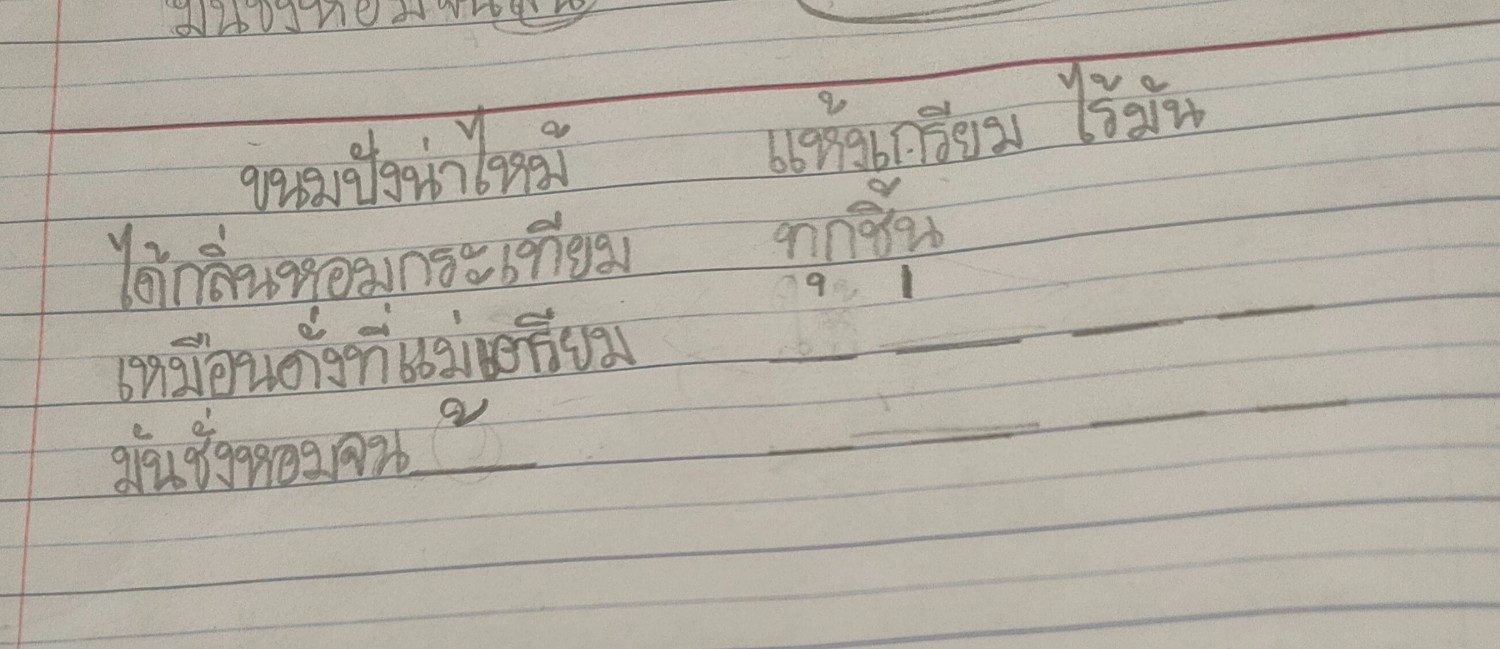 ขนมปังน่าไหม้ แห้งเกรียม ไร้มัน
ได้กลิ่นหอมกระเทียม ทุกชิ้น
เหมือนดั่งที่แม่เตรียม
มันชั่งหอมจน